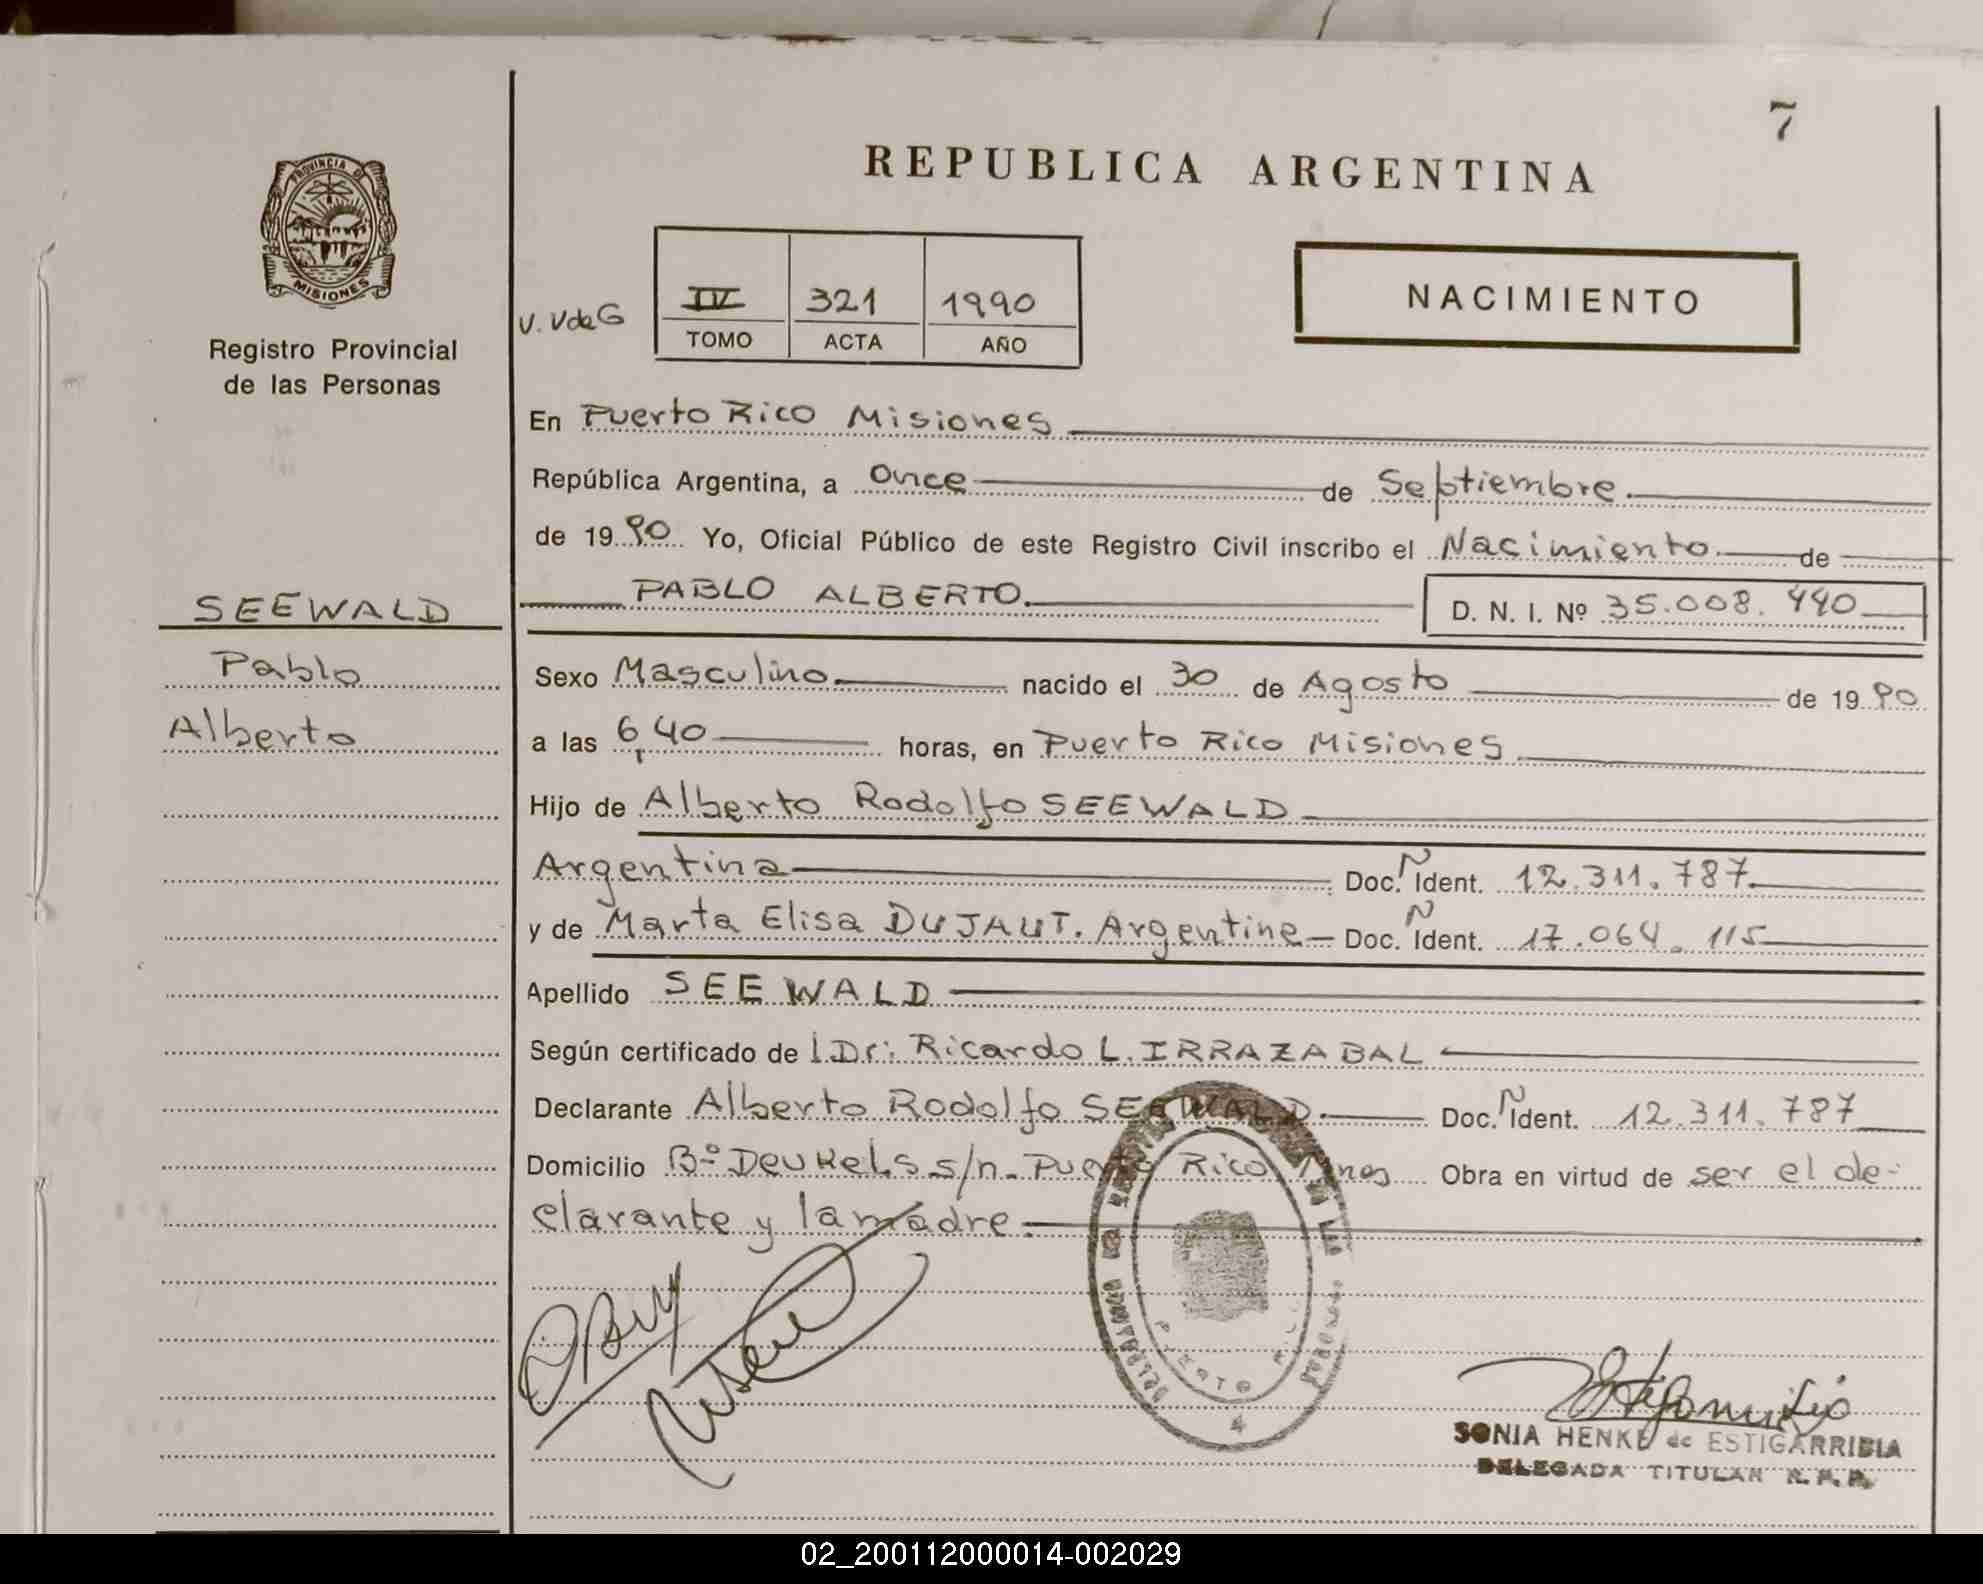 7
REPUBLICA ARGENTINA
PROVINCIA DE
MISIONES
Registro Provincial
de las Personas
V. VdeG
IV 321 1990
TOMO ACTA AÑO
NACIMIENTO
En Puerto Rico Misiones
República Argentina, a Once de Septiembre
de 1990 Yo, Oficial Público de este Registro Civil inscribo el Nacimiento de
PABLO ALBERTO D. N. I. Nº 35.008.440
SEEWALD
Pablo
Alberto
Sexo Masculino nacido el 30 de Agosto de 1990
a las 6,40 horas, en Puerto Rico Misiones
Hijo de Alberto Rodolfo SEEWALD
Argentina Doc. Ñ Ident. 12.311.787
y de Marta Elisa DUJAUT. Argentina Doc. Ñ Ident. 17.064.115
Apellido SEEWALD
Según certificado de l Dr: Ricardo L. IRRAZABAL
Declarante Alberto Rodolfo SEEWALD Doc. Ñ Ident. 12.311.787
Domicilio Bº Deukels s/n. Puerto Rico Mnes Obra en virtud de ser el de-
clarante y la madre
PUERTO RICO
SONIA HENKE de ESTIGARRIBIA
DELEGADA TITULAR R.P.P.
02_200112000014-002029